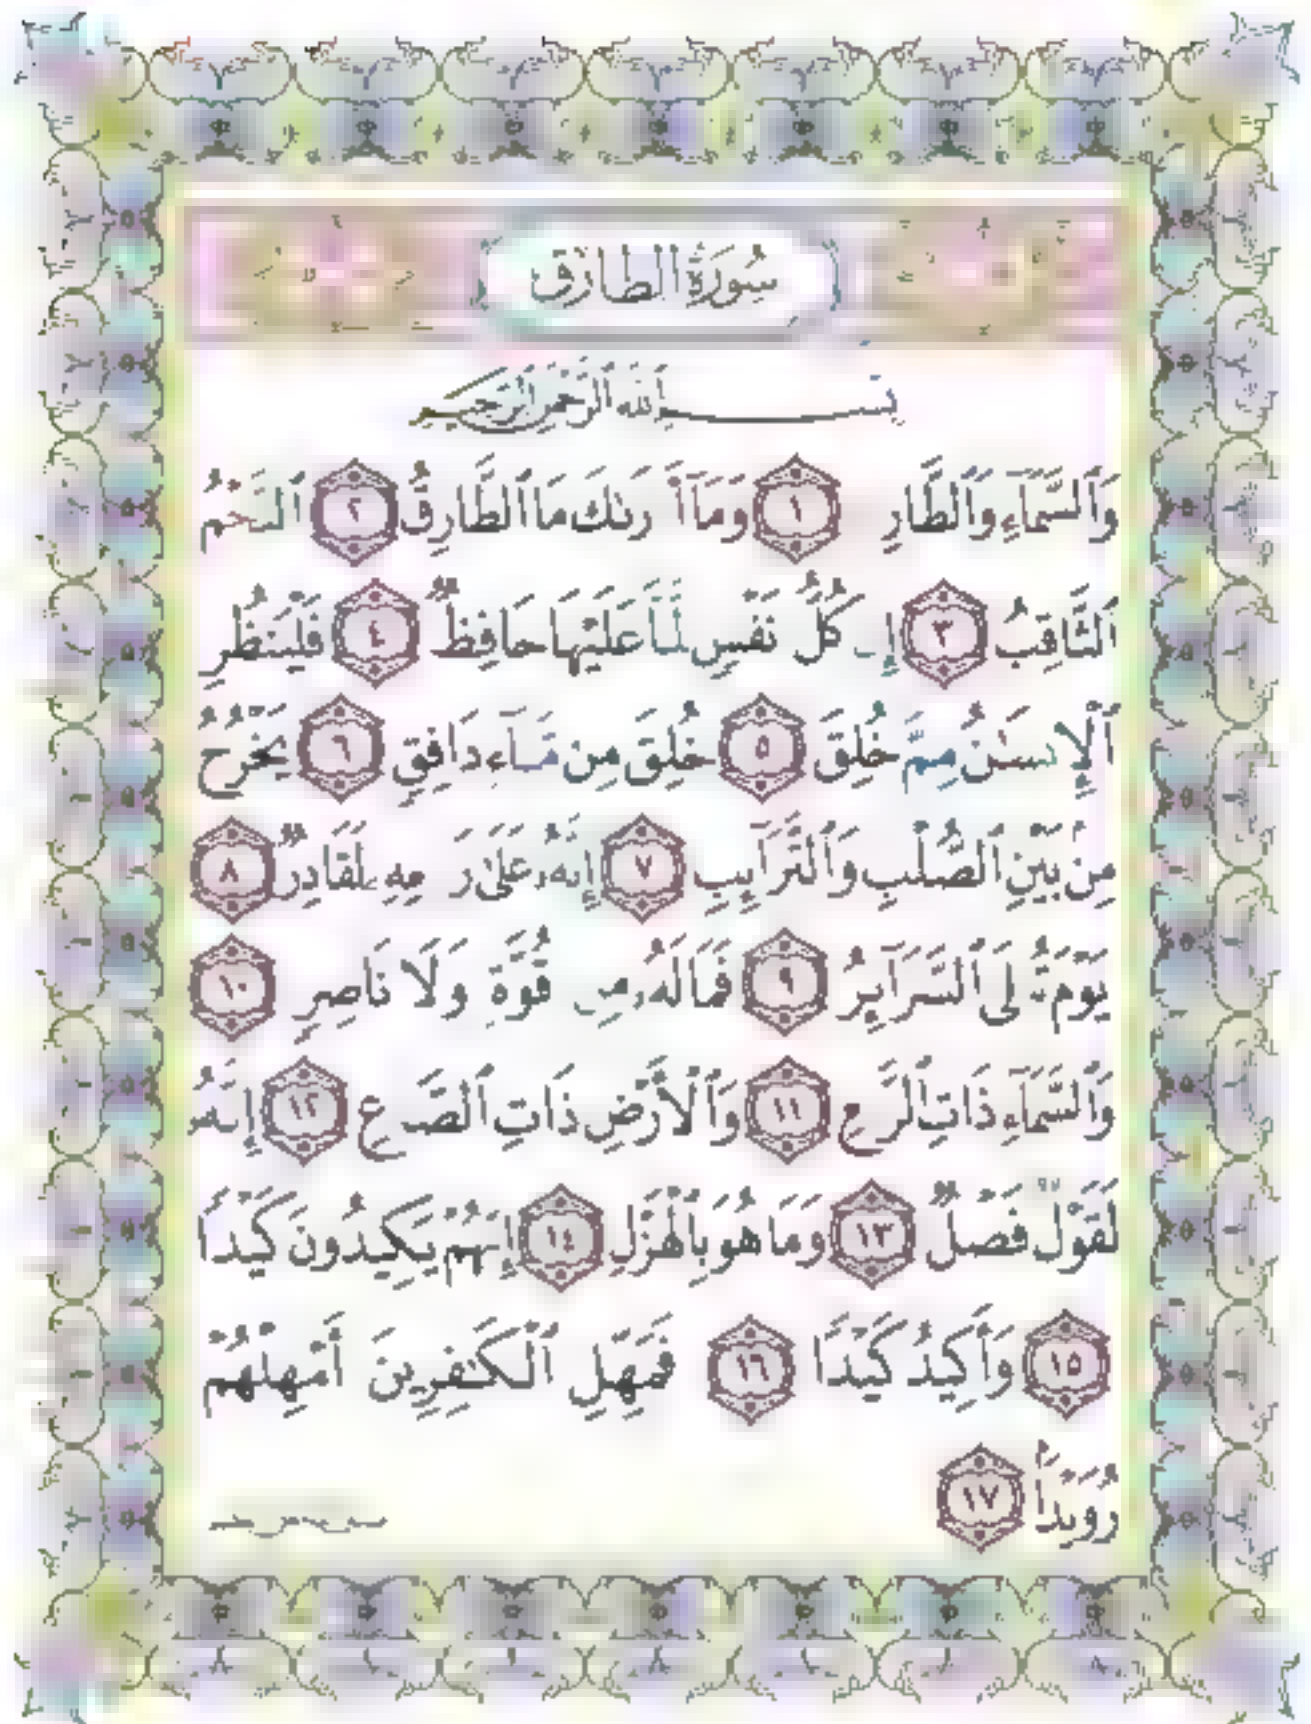 سُورَةُ ٱلطَّارِقِ
بِسْمِ ٱللَّهِ ٱلرَّحْمَٰنِ ٱلرَّحِيمِ
وَٱلسَّمَآءِ وَٱلطَّارِقِ ١ وَمَآ أَدْرَىٰكَ مَا ٱلطَّارِقُ ٢ ٱلنَّجْمُ
ٱلثَّاقِبُ ٣ إِن كُلُّ نَفْسٍ لَّمَّا عَلَيْهَا حَافِظٌ ٤ فَلْيَنظُرِ
ٱلْإِنسَٰنُ مِمَّ خُلِقَ ٥ خُلِقَ مِن مَّآءٍ دَافِقٍ ٦ يَخْرُجُ
مِنۢ بَيْنِ ٱلصُّلْبِ وَٱلتَّرَآئِبِ ٧ إِنَّهُۥ عَلَىٰ رَجْعِهِۦ لَقَادِرٌ ٨
يَوْمَ تُبْلَى ٱلسَّرَآئِرُ ٩ فَمَا لَهُۥ مِن قُوَّةٍ وَلَا نَاصِرٍ ١٠
وَٱلسَّمَآءِ ذَاتِ ٱلرَّجْعِ ١١ وَٱلْأَرْضِ ذَاتِ ٱلصَّدْعِ ١٢ إِنَّهُۥ
لَقَوْلٌ فَصْلٌ ١٣ وَمَا هُوَ بِٱلْهَزْلِ ١٤ إِنَّهُمْ يَكِيدُونَ كَيْدًا
١٥ وَأَكِيدُ كَيْدًا ١٦ فَمَهِّلِ ٱلْكَٰفِرِينَ أَمْهِلْهُمْ
رُوَيْدًۢا ١٧